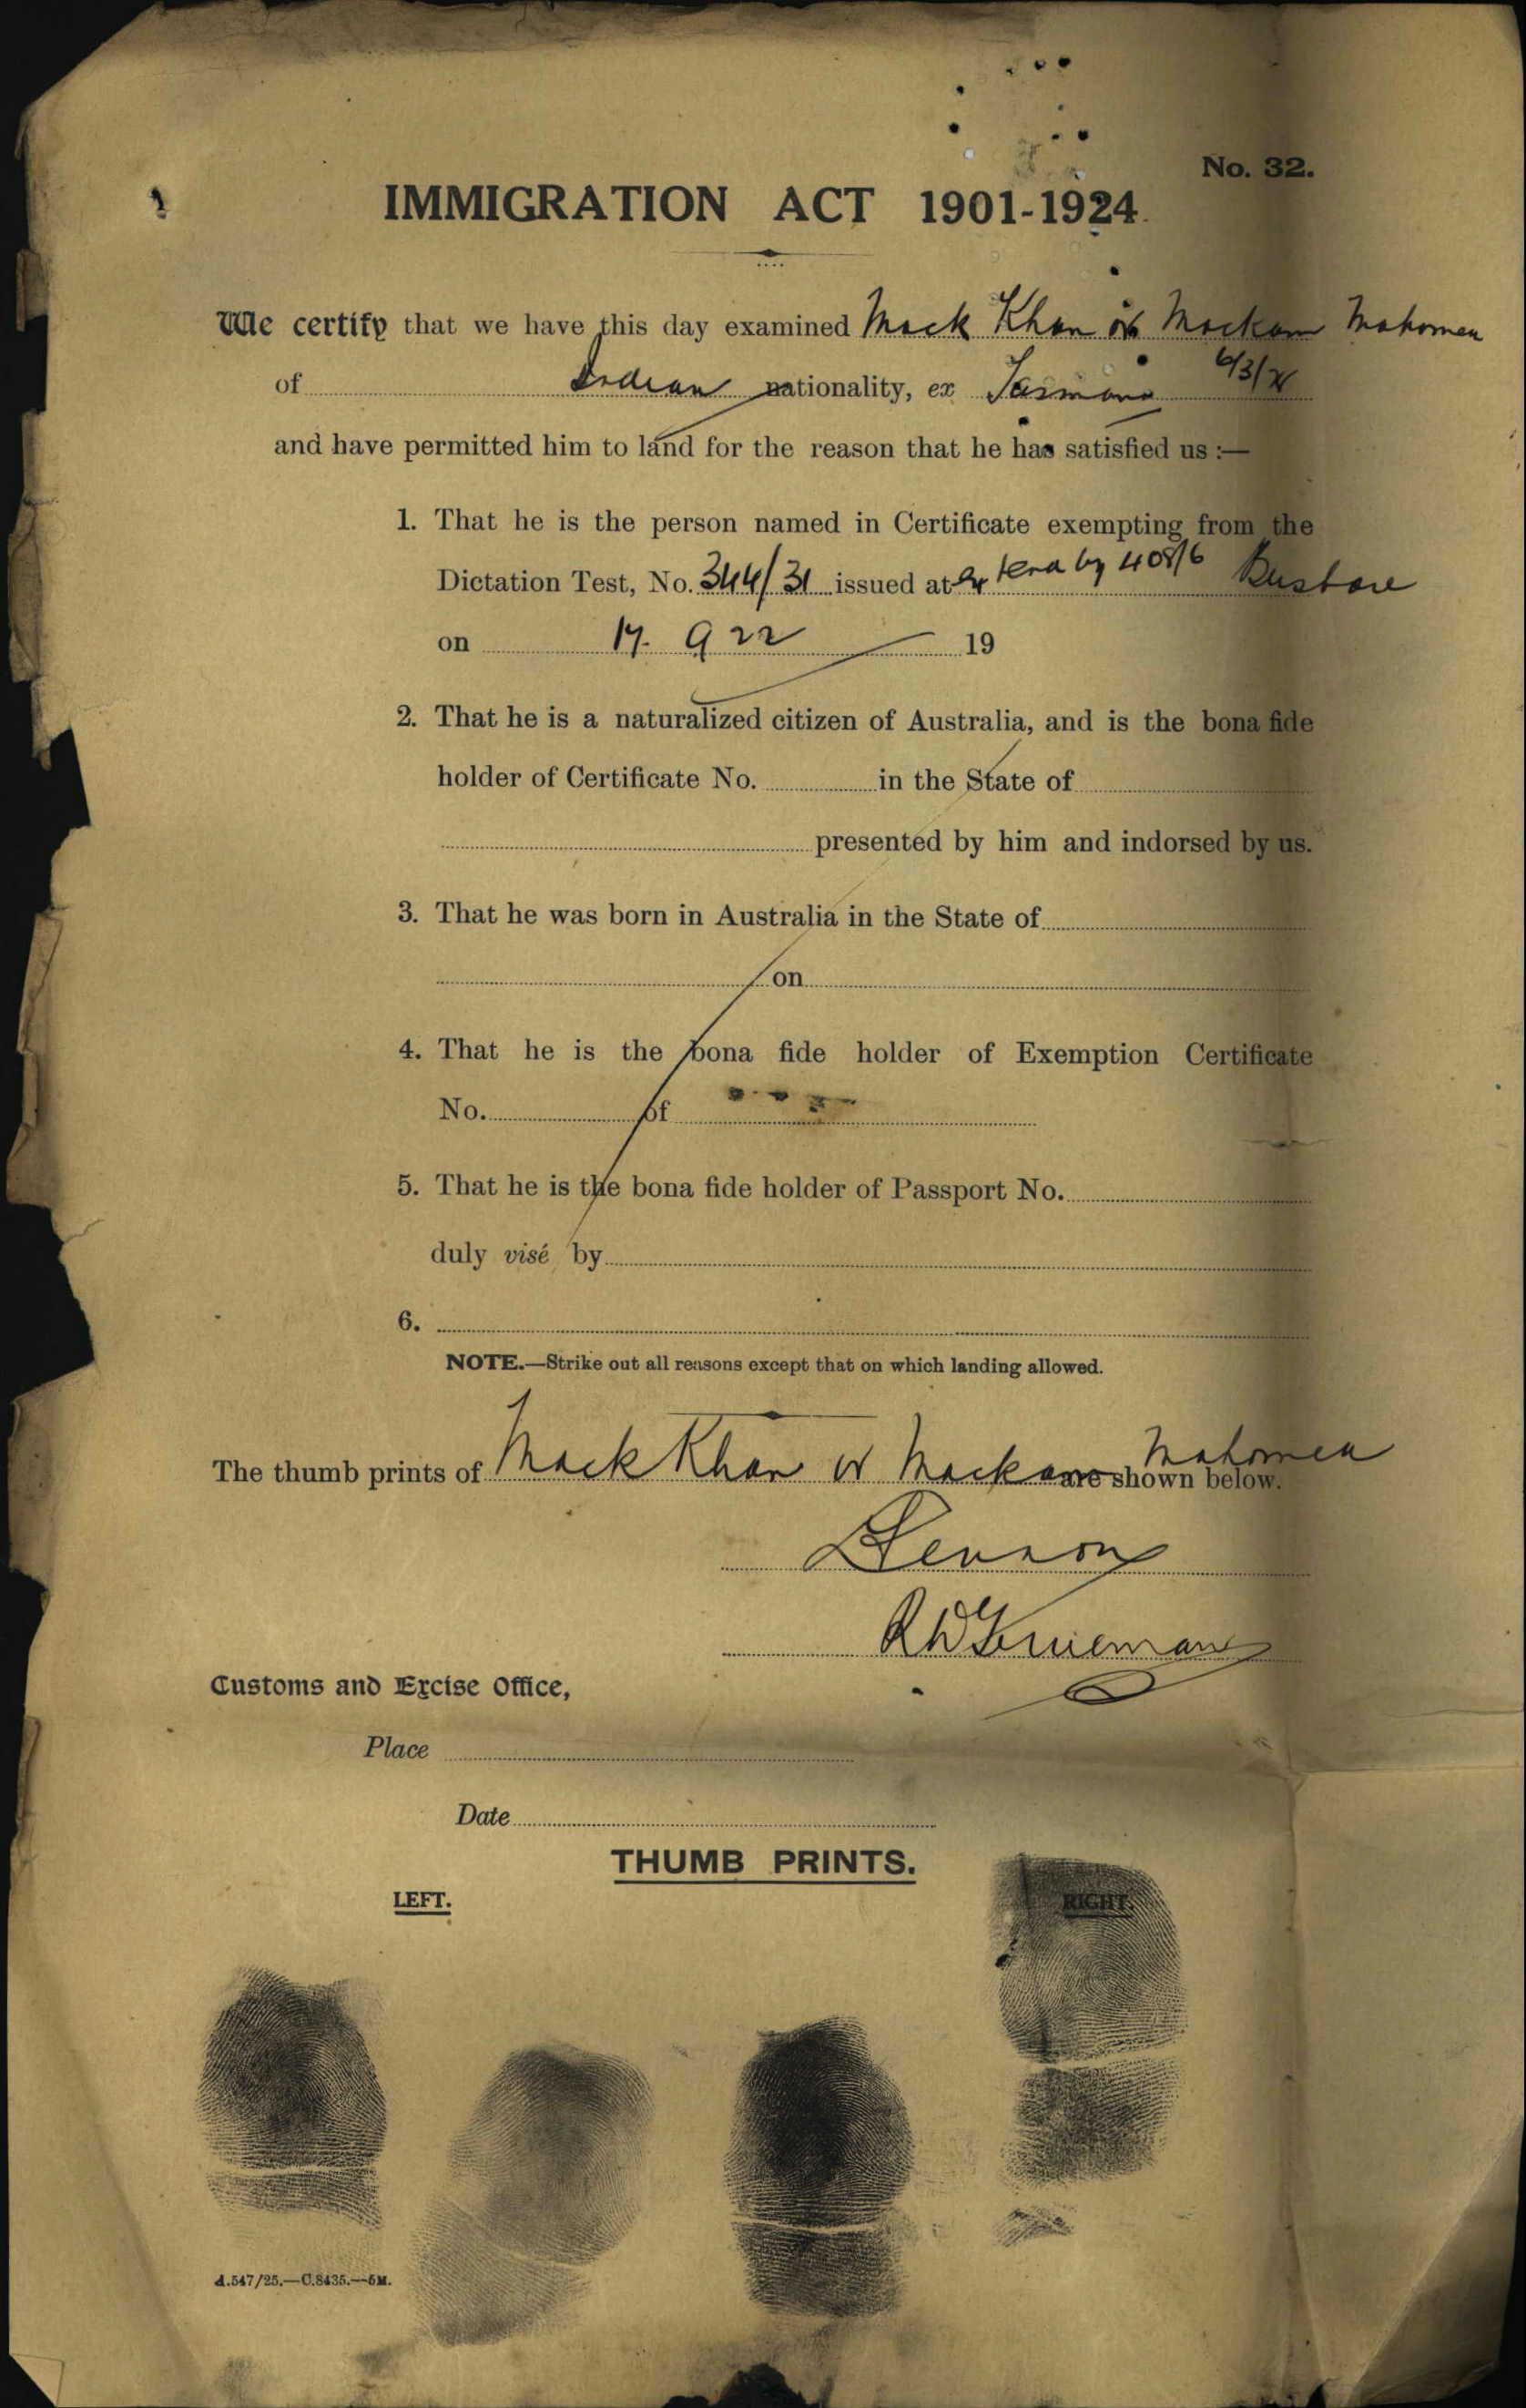 No. 32.
IMMIGRATION ACT 1901-1924.
We certify that we have this day examined Mack Khan or Mackam Mahomed
of Indian nationality, ex Tasmania
and have permitted him to land for the reason that he has satisfied us :—
1. That he is the person named in Certificate exempting from the
Dictation Test, No. 344/31 issued at by 408/6
on 17. 9 22 19
2. That he is a naturalized citizen of Australia, and is the bona fide
holder of Certificate No. in the State of
presented by him and indorsed by us.
3. That he was born in Australia in the State of
on
4. That he is the bona fide holder of Exemption Certificate
No. of
5. That he is the bona fide holder of Passport No.
duly visé by
6.
NOTE.—Strike out all reasons except that on which landing allowed.
The thumb prints of Mack Khan or Mackam Mahomed are shown below.
Customs and Excise Office,
Place
Date
THUMB PRINTS.
LEFT. RIGHT.
A.547/25.—C.8435.—5M.